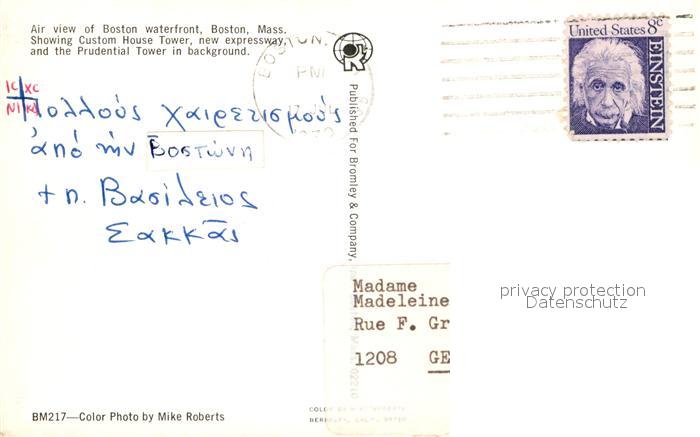 Air view of Boston waterfront, Boston, Mass.
Showing Custom House Tower, new expressway,
and the Prudential Tower in background.
IC XC
NI KA
Πολλούς χαιρετισμούς
ἀπό τήν Βοστώνη
+ π. Βασίλειος
Σακκᾶς
Published For Bromley & Company,
United States 8c
EINSTEIN
PM
Madame
Madeleine
Rue F. Gr
1208 GE
privacy protection
Datenschutz
BM217—Color Photo by Mike Roberts